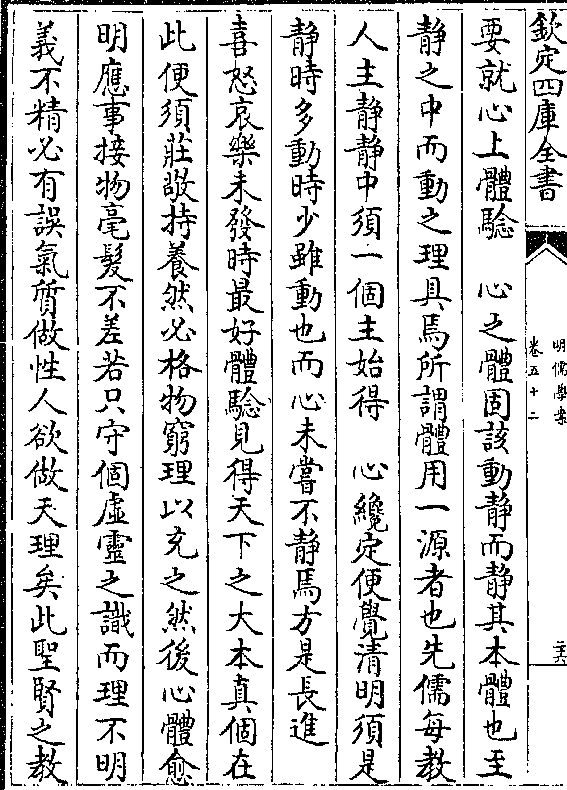 欽定四庫全書
明儒學案
卷五十二
二六
要就心上體驗　心之體固該動靜而靜其本體也至
靜之中而動之理具焉所謂體用一源者也先儒每教
人主靜靜中須一個主始得　心纔定便覺清明須是
靜時多動時少雖動也而心未嘗不靜焉方是長進
喜怒哀樂未發時最好體驗見得天下之大本真個在
此便須莊敬持養然必格物窮理以充之然後心體愈
明應事接物毫髮不差若只守個虛靈之識而理不明
義不精必有誤氣質做性人欲做天理矣此聖賢之教